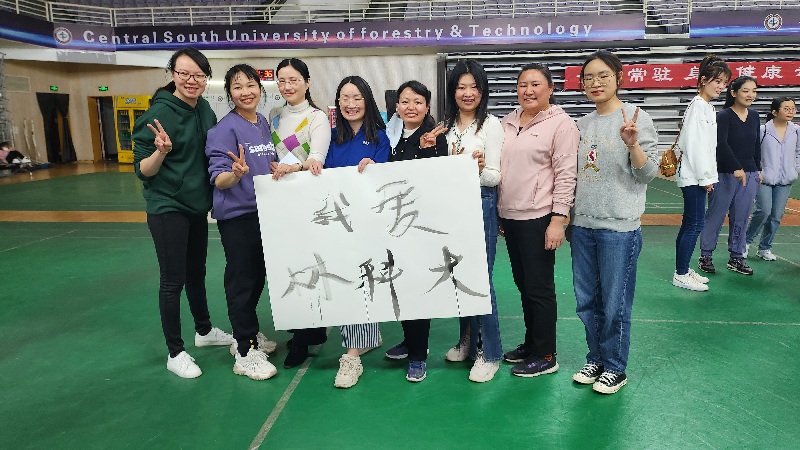 Central South University of forestry & Technology
常驻 身 健康
我爱
林科大